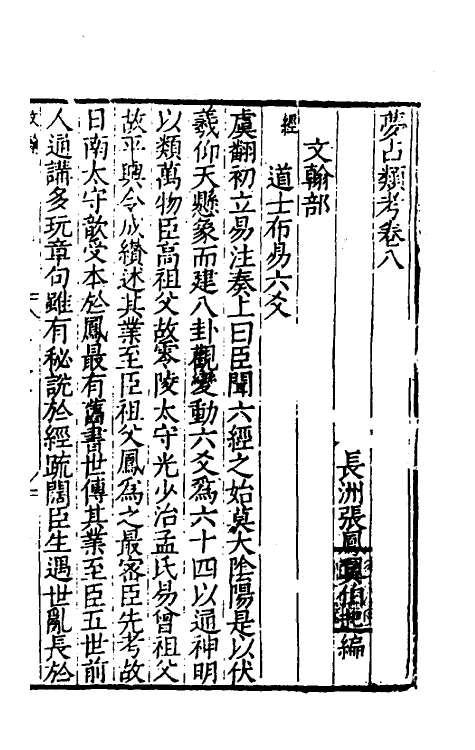 夢占類考卷八
長洲張鳳翼伯起編
文翰部
經
道士布易六爻
虞翻初立易注奏上曰臣聞六經之始莫大陰陽是以伏
羲仰天懸象而建八卦觀變動六爻爲六十四以通神明
以類萬物臣高祖父故零陵太守光少治孟氏易曾祖父
故平輿令成纘述其業至臣祖父鳳爲之最密臣先考故
日南太守歆受本於鳳最有舊書世傳其業至臣五世前
人通講多玩章句雖有秘說於經疏闊臣生遇世亂長於